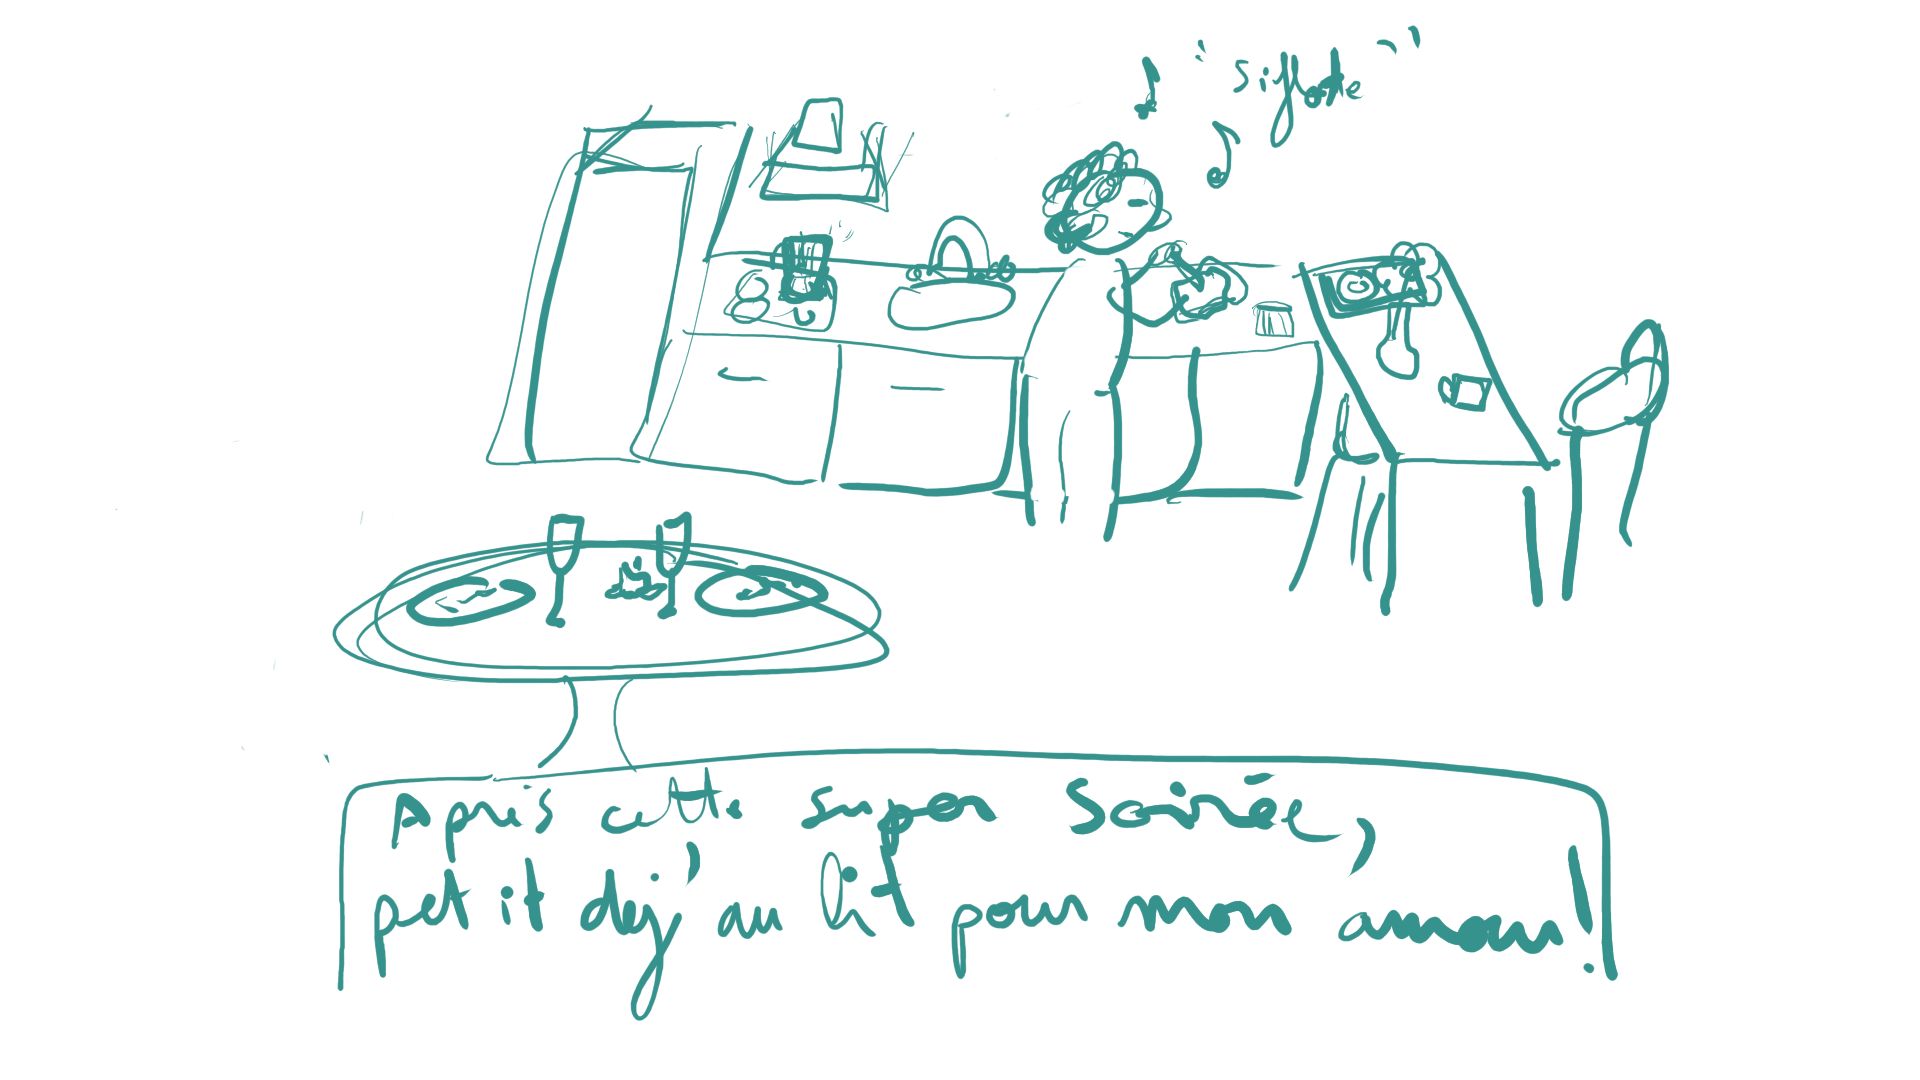 "siflote"
Après cette super soirée,
petit dej' au lit pour mon amour!